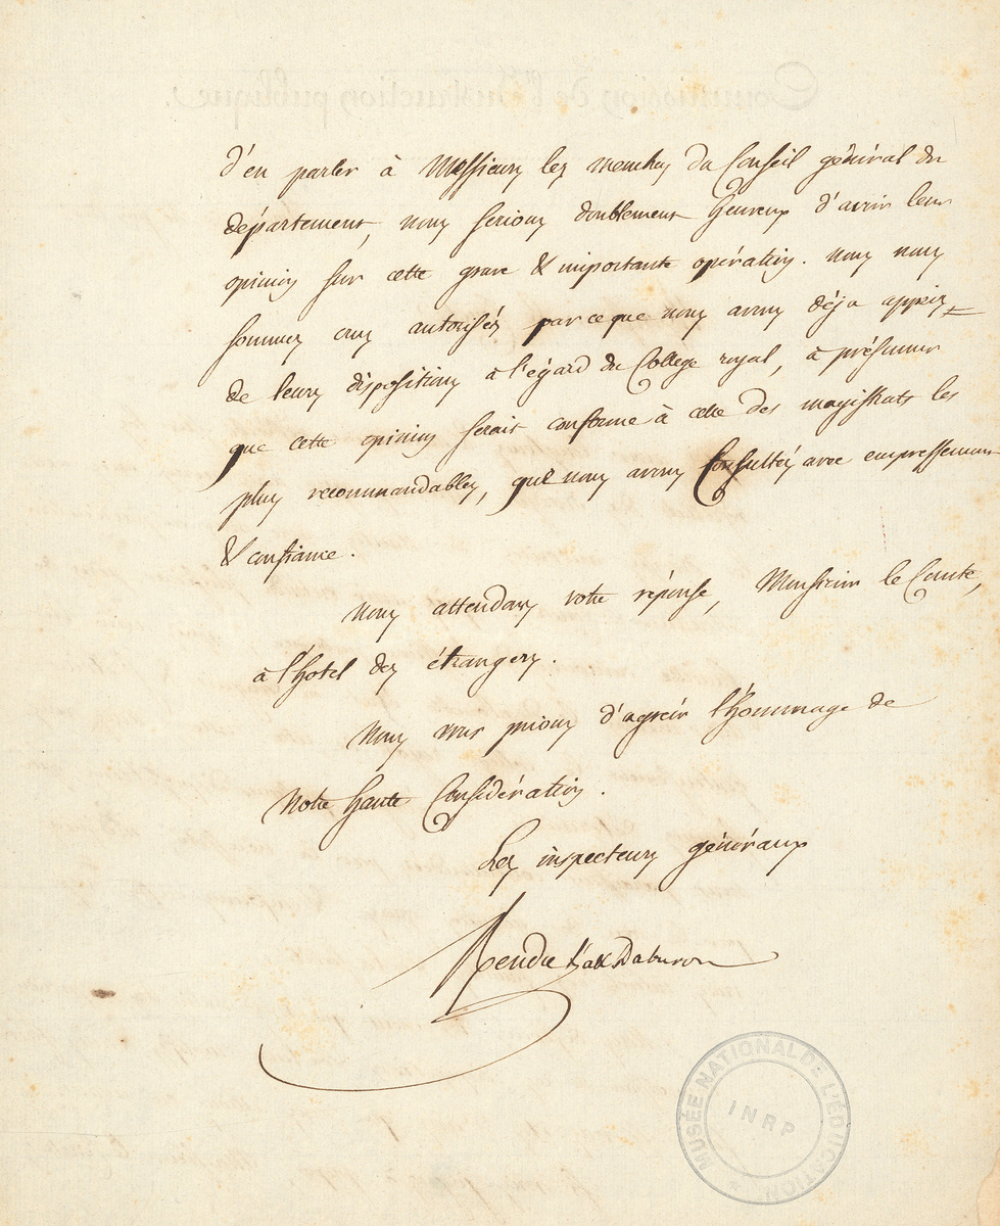 d'en parler à Messieurs les membres du Conseil général du
département, nous serions doublement heureux d'avoir leur
opinion sur cette grave & importante opération. nous nous
sommes crus autorisés parceque nous avons déja appris
de leurs dispositions à l'égard du College royal, à présumer
que cette opinion serait conforme à celle des magistrats les
plus recommandables, que nous avons Consultés avec empressement
& confiance.
Nous attendons votre réponse, Monsieur le Comte,
à l'hotel des étrangers.
Nous vous prions d'agréer l'hommage de
Notre haute Considération.
Les inspecteurs généraux
Rendu Daburon
MUSÉE NATIONAL DE L'ÉDUCATION
INRP
Commission de l'Instruction publique.